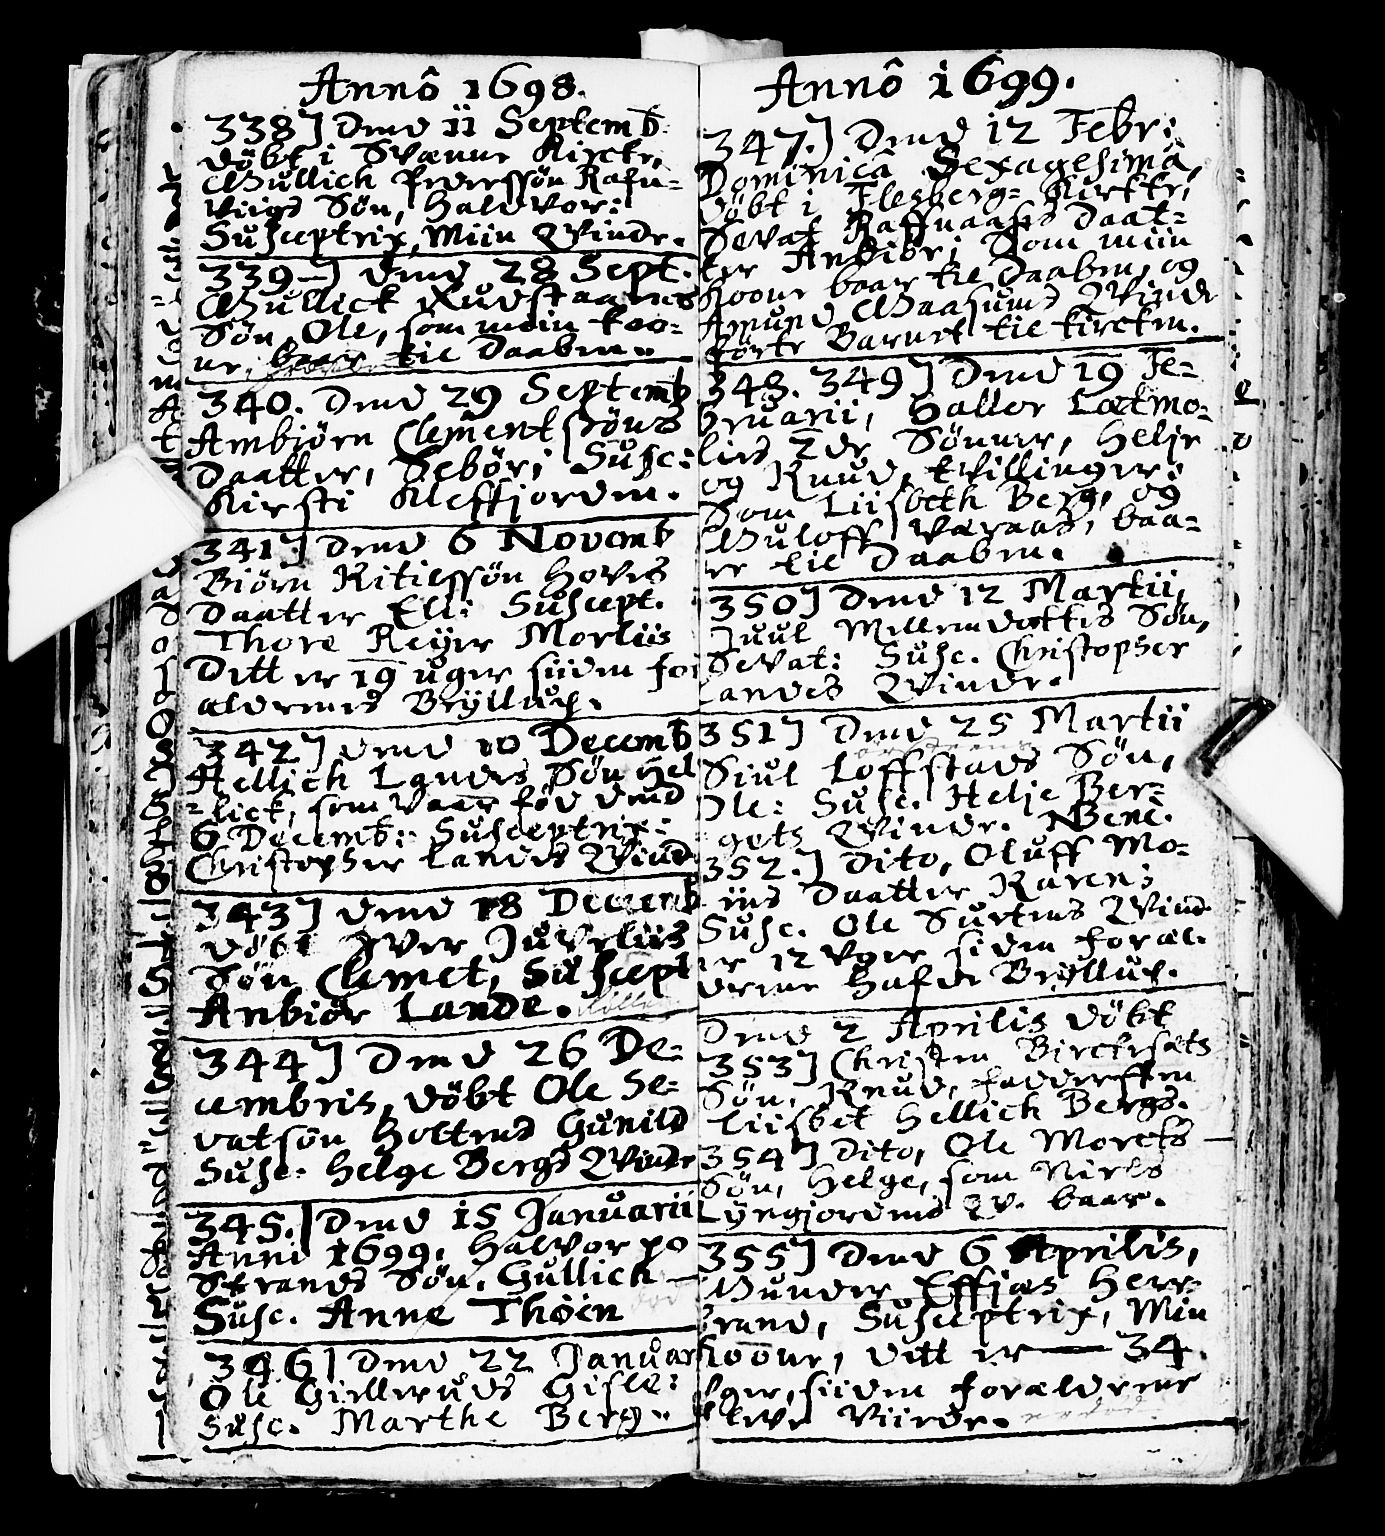 Annô 1698.
338] Dend 11 Septemb.
döbt i Svenne Kircke,
Gullich Pederssön Rafn=
viigs Sön, Haldvor:
Susceptrix, Miin Qvinde.
339] dend 28 Sept.
Gullick Rudstaanes
Sön, Ole, som mein koo=
ne, baar til Daaben.
340. Dend 29 Septemb
Ambjörn Clementssöns
Daatter, Sebör; Susc:
Kirsti Kleffjorden.
341] Dend 6 Novemb
Biörn Kitilssön Hoves
Daatter Eli: Suscept.
Thore Reyer Morliis
Ditt er 19 uger siiden for
ældrenes Bryllup.
342] dend 10 Decemb
Hellich Landes Sön Hel
=lick, som vaar föd dend
6 Decemb: Susceptrix:
Christopher Landes Qvind
343] dend 18 Decemb
döbt Iver Juveliis
Sön Clemet, Suscept
Anbiör Lande.
344] Dend 26 De=
cembris, döbt Ole Se=
vatsön Holtens Gunild
Susc. Helge Bergs Qvinde
345.] Dend 15 Januarii
Anni 1699. Halvor po
Strands Sön, Gullich
Susc. Anne Thöen
346] Dend 22 Januar
Ole Gielleruds Gisle:
Susc. Marthe Berg.
Annô 1699.
347.] Dend 12 Febr:
Dominica Sexagesima,
döbt i Flesberg= Kircke,
Sevat Raffnaases Daat=
ter Anbiör; Som miin
Koone baar til Daaben, og
Amund Maasunds Qvinde
förte Barnet til kircken.
348. 349] Dend 19 Fe=
bruarii, Hallor Lætmo=
liis 2de Sönner, Helje
og Knud, tvillinger:
Som Liisbeth Berg, og
Guloff Væraas, baa=
re til Daaben.
350] Dend 12 Martii,
Juul Mellemdottis Sön,
Sevat: Susc. Christopher
Landes Qvinde.
351] Dend 25 Martii
Siul Loffstads Sön,
Ole: Susc. Helje Ber=
gets Qvinde. NBene.
352.] Dito, Oluff Mo=
iis Daatter Karen;
Susc. Ole Surtens Qvind
er 12 Vger siden foræl=
drene hafde Bryllup.
Dend 2 Aprilis döbt
353] Christen Birckesæts
Sön, Knud, fadderssken
Liisbet Hellich Bergs.
354] Dito, Ole Morets
Sön, Helge, som Niels
Lyngjordens Qv. baar.
355] Dend 6 Aprilis,
Gunder Effjæs Her=
brand, Susceptrix, Min
Koone, ditt er — 34.
Vger, siiden forældrene
bleve Viirde.